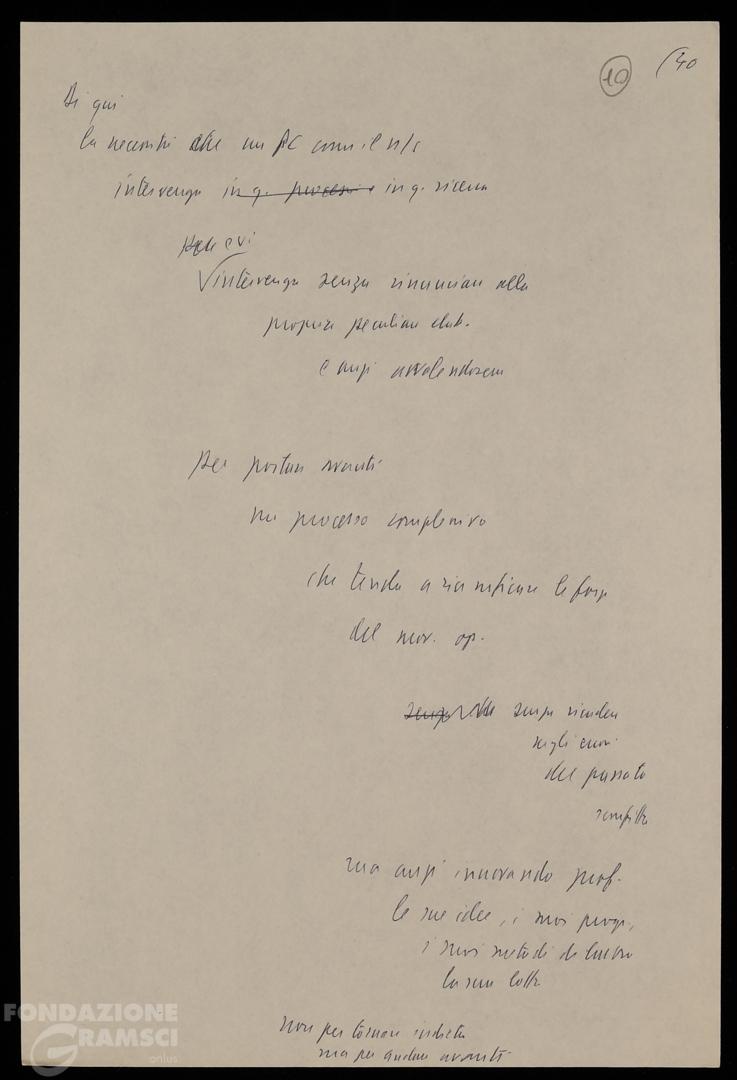 10 (40
Di qui
la necessità che un PC come il n/s
intervenga in q. processi in q. ricerca
intervenga senza rinunciare alla
propria peculiare elab.
e anzi avvalendosene
per portare avanti
un processo complessivo
che tenda a riunificare le forze
del mov. op.
senza che senza ricadere
negli errori
del passato
ma anzi innovando prof.
le sue idee, i suoi progr.,
i suoi metodi di lavoro
la sua lotta
non per tornare indietro
ma per andare avanti
FONDAZIONE
GRAMSCI
onlus